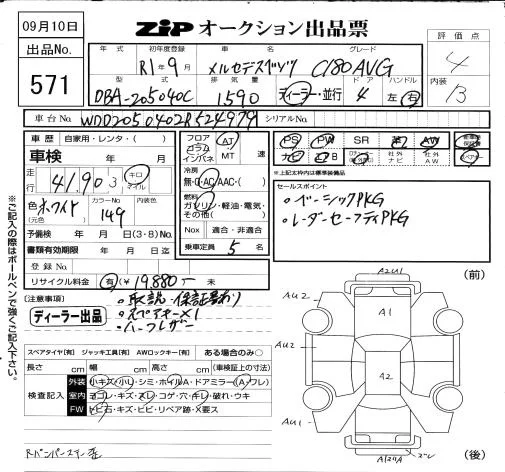 09月10日
ZiP オークション出品票
出品No.
571
評価点
4
内装
B
年式 初年度登録 車名 グレード
R1年9月 メルセデスベンツ C180 AVG
型式 排気量 ドア ハンドル
DBA-205040C 1590 ディーラー・並行 4 左 右
車台No. WDD2050402R524979 シリアルNo.
車歴 自家用・レンタ・( )
車検 年 月
走行 41,903 キロ マイル
色 ホワイト (元色) カラーNo. 149 内装色
予備検 年 月 日(3・8)No.
書類有効期限 年 月 日迄
登録No.
リサイクル料金 有(¥19,880- 未
フロア コラム インパネ AT MT 速
冷房 無・G・AC/AAC・( )
燃料 ガソリン・軽油・電気・その他( )
Nox 適合・非適合
乗車定員 5 名
PS PW SR AW
ナビ B 社外ナビ 社外AW
※上記太枠内は標準装備品
セールスポイント
・ベーシックPKG
・レーダーセーフティPKG
(注意事項)
ディーラー出品
・取説・保証書あり
・スペアキー×1
・ハーフレザー
※ご記入の際はボールペンで強くご記入下さい。
スペアタイヤ[有] ジャッキ工具[有] AWロックキー[有] ある場合のみ○
長さ cm 幅 cm 高さ cm (車検証上の寸法)
検査記入
外装 小キズ・小U・シミ・ホイルA・ドアミラー(A・ワレ)
室内 ヨゴレ・キズ・スレ・コゲ・穴・キレ・破れ・ウキ
FW トビ石・キズ・ヒビ・リペア跡・X要ス
(前)
A2U1
AU2
A1
AU2
A2
AU1
(後)